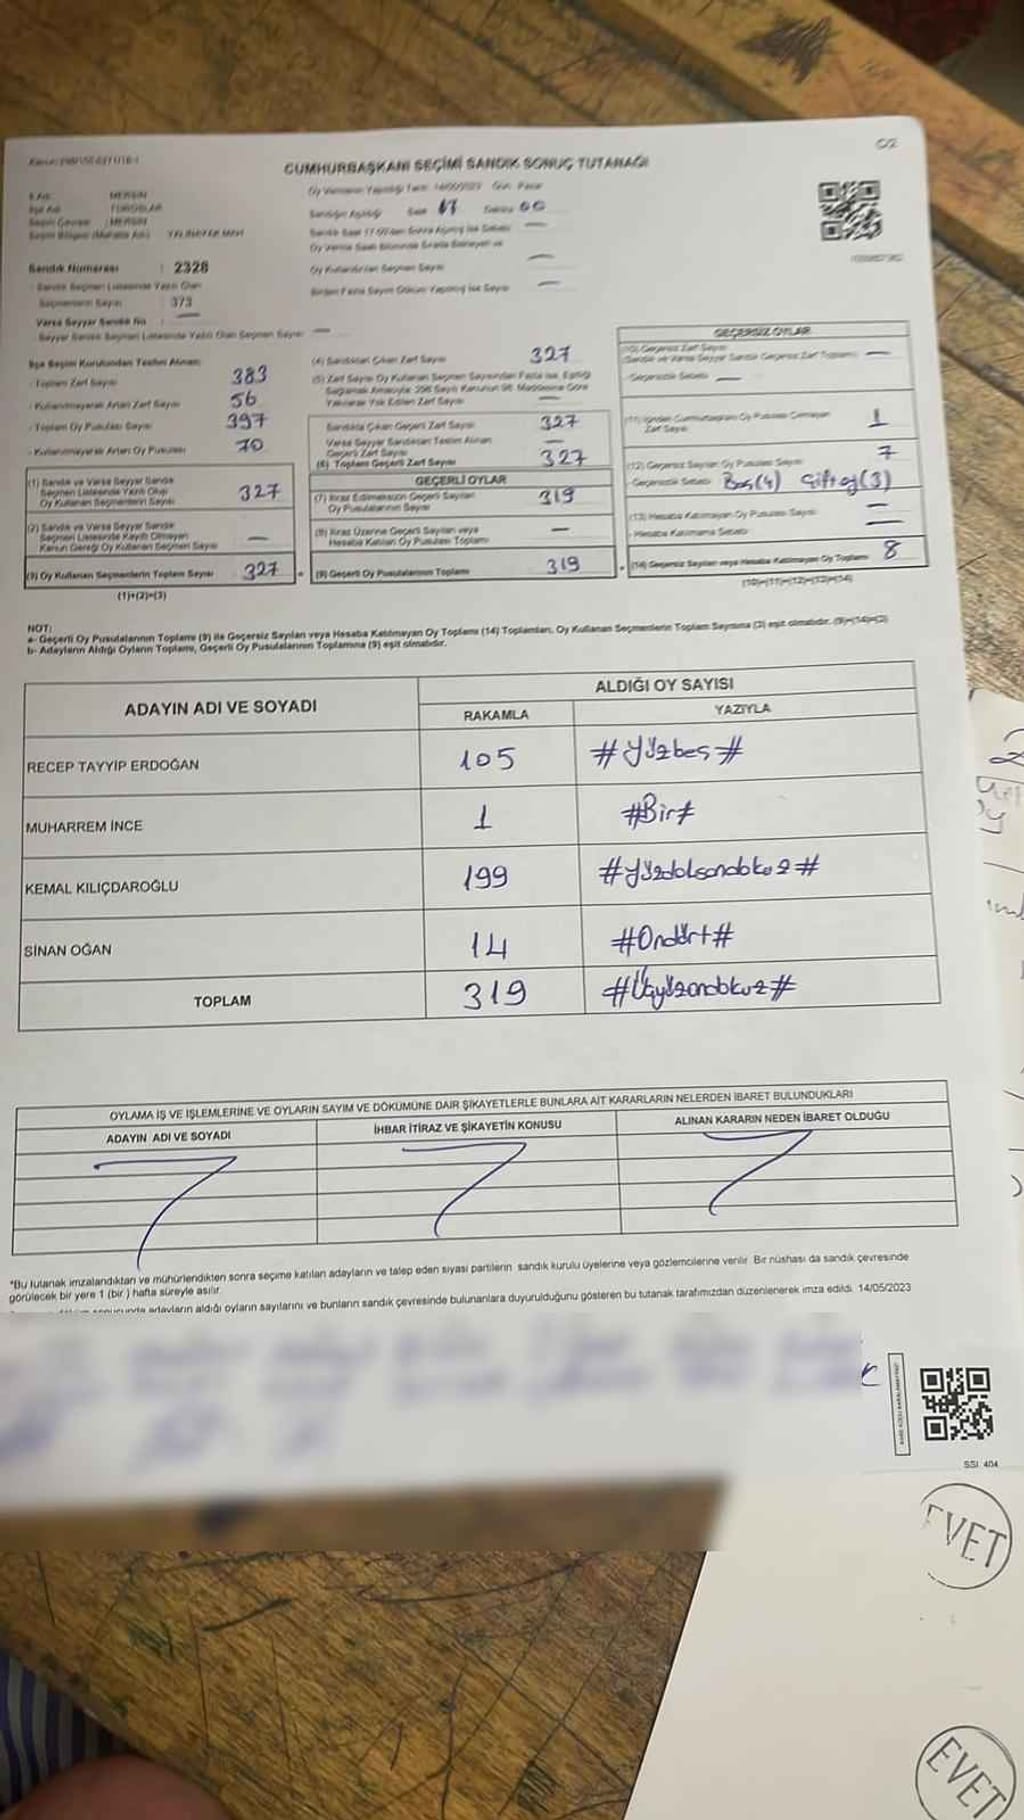 CUMHURBAŞKANI SEÇİMİ SANDIK SONUÇ TUTANAĞI
02
MERSİN
TOROSLAR
MERSİN
Sandık Numarası : 2328
Sandık Seçmen Listesinde Yazılı Olan
Seçmenlerin Sayısı 373
Varsa Seyyar Sandık No
Seyyar Sandık Seçmen Listesinde Yazılı Olan Seçmen Sayısı —
İlçe Seçim Kurulundan Teslim Alınan:
- Toplam Zarf Sayısı 383
- Kullanılmayarak Artan Zarf Sayısı 56
- Toplam Oy Pusulası Sayısı 397
- Kullanılmayarak Artan Oy Pusulası 70
(1) Sandık ve Varsa Seyyar Sandık
Seçmen Listesinde Yazılı Olup
Oy Kullanan Seçmenlerin Sayısı 327
(2) Sandık ve Varsa Seyyar Sandık
Seçmen Listesinde Kayıtlı Olmayan
Kanun Gereği Oy Kullanan Seçmen Sayısı —
(3) Oy Kullanan Seçmenlerin Toplam Sayısı 327
(1)+(2)=(3)
Sandığın Açıldığı Saat 17 00
Oy Kullandırılan Seçmen Sayısı —
(4) Sandıktan Çıkan Zarf Sayısı 327
Sandıkta Çıkan Geçerli Zarf Sayısı 327
Varsa Seyyar Sandıktan Teslim Alınan
Geçerli Zarf Sayısı —
(6) Toplam Geçerli Zarf Sayısı 327
GEÇERLİ OYLAR
(7) İtiraz Edilmeksizin Geçerli Sayılan
Oy Pusulalarının Sayısı 319
(8) İtiraz Üzerine Geçerli Sayılan veya
Hesaba Katılan Oy Pusulası Toplamı —
(9) Geçerli Oy Pusulalarının Toplamı 319
GEÇERSİZ OYLAR
(10) Geçersiz Zarf Sayısı
(Sandık ve Varsa Seyyar Sandık Geçersiz Zarf Toplamı) —
- Geçersizlik Sebebi —
Zarf Sayısı 1
(12) Geçersiz Sayılan Oy Pusulası Sayısı 7
- Geçersizlik Sebebi Boş(4) Çift oy(3)
(13) Hesaba Katılmayan Oy Pusulası Sayısı —
- Hesaba Katılmama Sebebi —
(14) Geçersiz Sayılan veya Hesaba Katılmayan Oy Toplamı 8
NOT:
a- Geçerli Oy Pusulalarının Toplamı (9) ile Geçersiz Sayılan veya Hesaba Katılmayan Oy Toplamı (14) Toplamları, Oy Kullanan Seçmenlerin Toplam Sayısına (3) eşit olmalıdır. (9)+(14)=(3)
b- Adayların Aldığı Oyların Toplamı, Geçerli Oy Pusulalarının Toplamına (9) eşit olmalıdır.
ADAYIN ADI VE SOYADI
ALDIĞI OY SAYISI
RAKAMLA YAZIYLA
RECEP TAYYİP ERDOĞAN 105 #Yüzbeş#
MUHARREM İNCE 1 #Bir#
KEMAL KILIÇDAROĞLU 199 #Yüzdoksandokuz#
SİNAN OĞAN 14 #Ondört#
TOPLAM 319 #Üçyüzondokuz#
OYLAMA İŞ VE İŞLEMLERİNE VE OYLARIN SAYIM VE DÖKÜMÜNE DAİR ŞİKAYETLERLE BUNLARA AİT KARARLARIN NELERDEN İBARET BULUNDUKLARI
ADAYIN ADI VE SOYADI İHBAR İTİRAZ VE ŞİKAYETİN KONUSU ALINAN KARARIN NEDEN İBARET OLDUĞU
*Bu tutanak imzalandıktan ve mühürlendikten sonra seçime katılan adayların ve talep eden siyasi partilerin sandık kurulu üyelerine veya gözlemcilerine verilir. Bir nüshası da sandık çevresinde
görülecek bir yere 1 (bir ) hafta süreyle asılır.
adayların aldığı oyların sayılarını ve bunların sandık çevresinde bulunanlara duyurulduğunu gösteren bu tutanak tarafımızdan düzenlenerek imza edildi. 14/05/2023
SSI 404
EVET
EVET